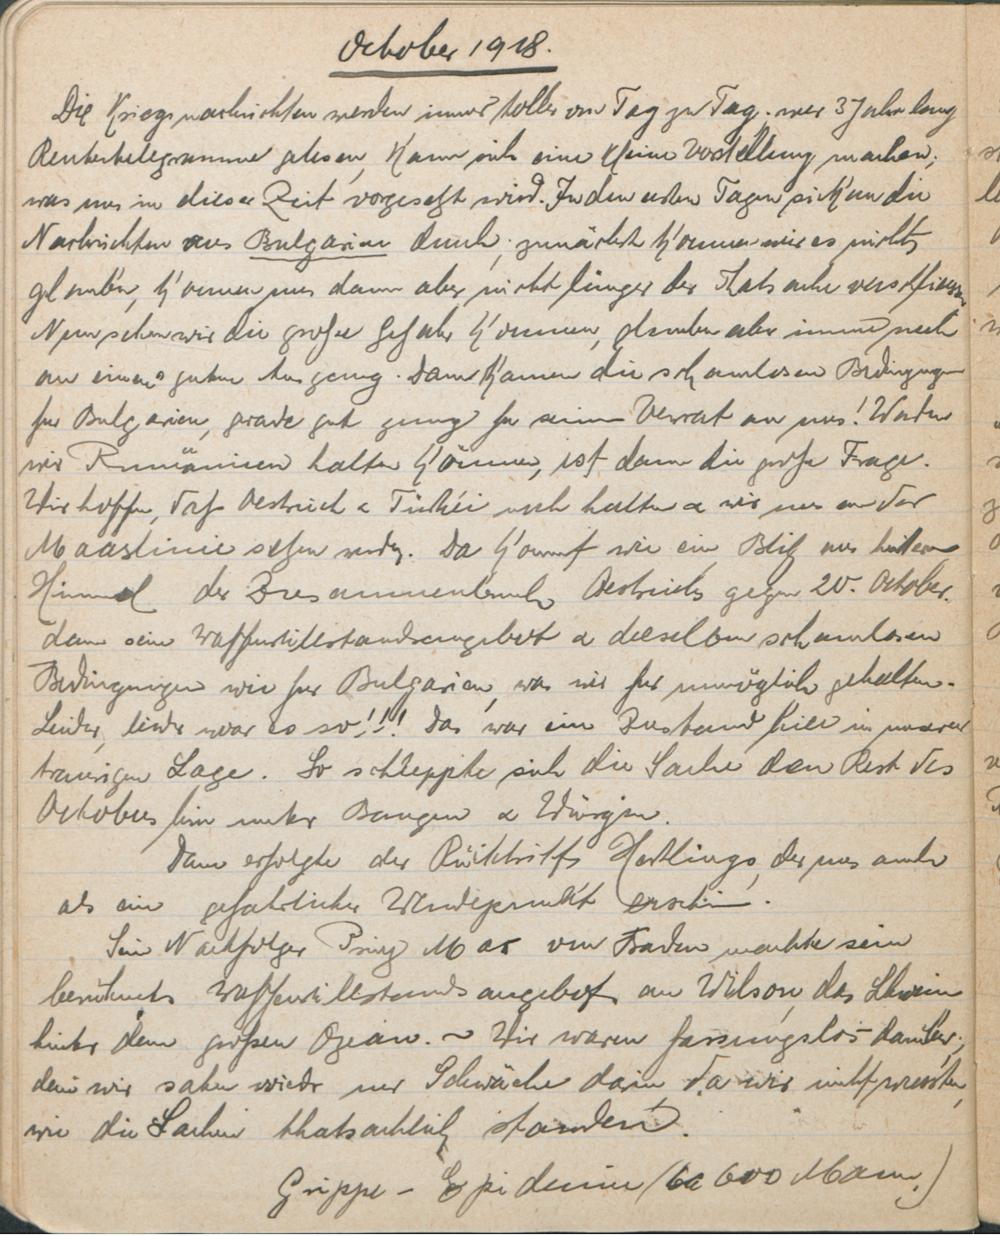 October 1918.
Die Kriegsnachrichten werden immer toller von Tag zu Tag; wer 3 Jahre lang
Reutertelegramme gelesen, kann sich eine kleine Vorstellung machen,
was uns in dieser Zeit vorgesetzt wird. In den ersten Tagen sickern die
Nachrichten aus Bulgarien durch; zunächst können wir es nicht
glauben, können uns dann aber nicht länger der Thatsache verschliessen
Nun sehen wir die große Gefahr kommen, glauben aber immer noch
an einen guten Ausgang. Dann kamen die schamlosen Bedingungen
für Bulgarien, grade gut genug für seinen Verrat an uns! Werden
wir Rumänien halten können, ist dann die große Frage.
Wir hoffen, daß Oestreich & Türkei noch halten & wir uns an der
Maaslinie setzen werden. Da kommt wie ein Blitz aus heiterm
Himmel der Zusammenbruch Oestreichs gegen 20. October.
dann sein Waffenstillstandsangebot & dieselben schamlosen
Bedingungen wie für Bulgarien, was wir für unmöglich gehalten.
Leider, leider war es so!!! Das war ein Zustand hier in unserer
traurigen Lage. So schleppte sich die Sache den Rest des
Octobers hin unter Bangen & Würgen.
Dann erfolgte der Rücktritt Hertlings, der uns auch
als ein gefährlicher Wendepunkt erschien.
Sein Nachfolger Prinz Max von Baden machte sein
berühmtes Waffenstillstandsangebot an Wilson, das Schwein
hinter dem großen Ozean. ~ Wir waren fassungslos darüber,
denn wir sahen wieder nur Schwäche darin da wir nicht wussten,
wie die Sachen thatsächlich standen.
Grippe - Epidemie (60 000 Mann.)